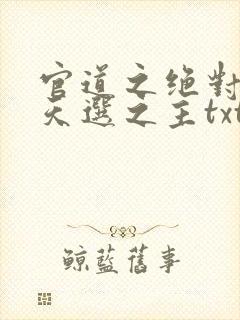 官道之绝對
天選之主txt
鲸藍舊事